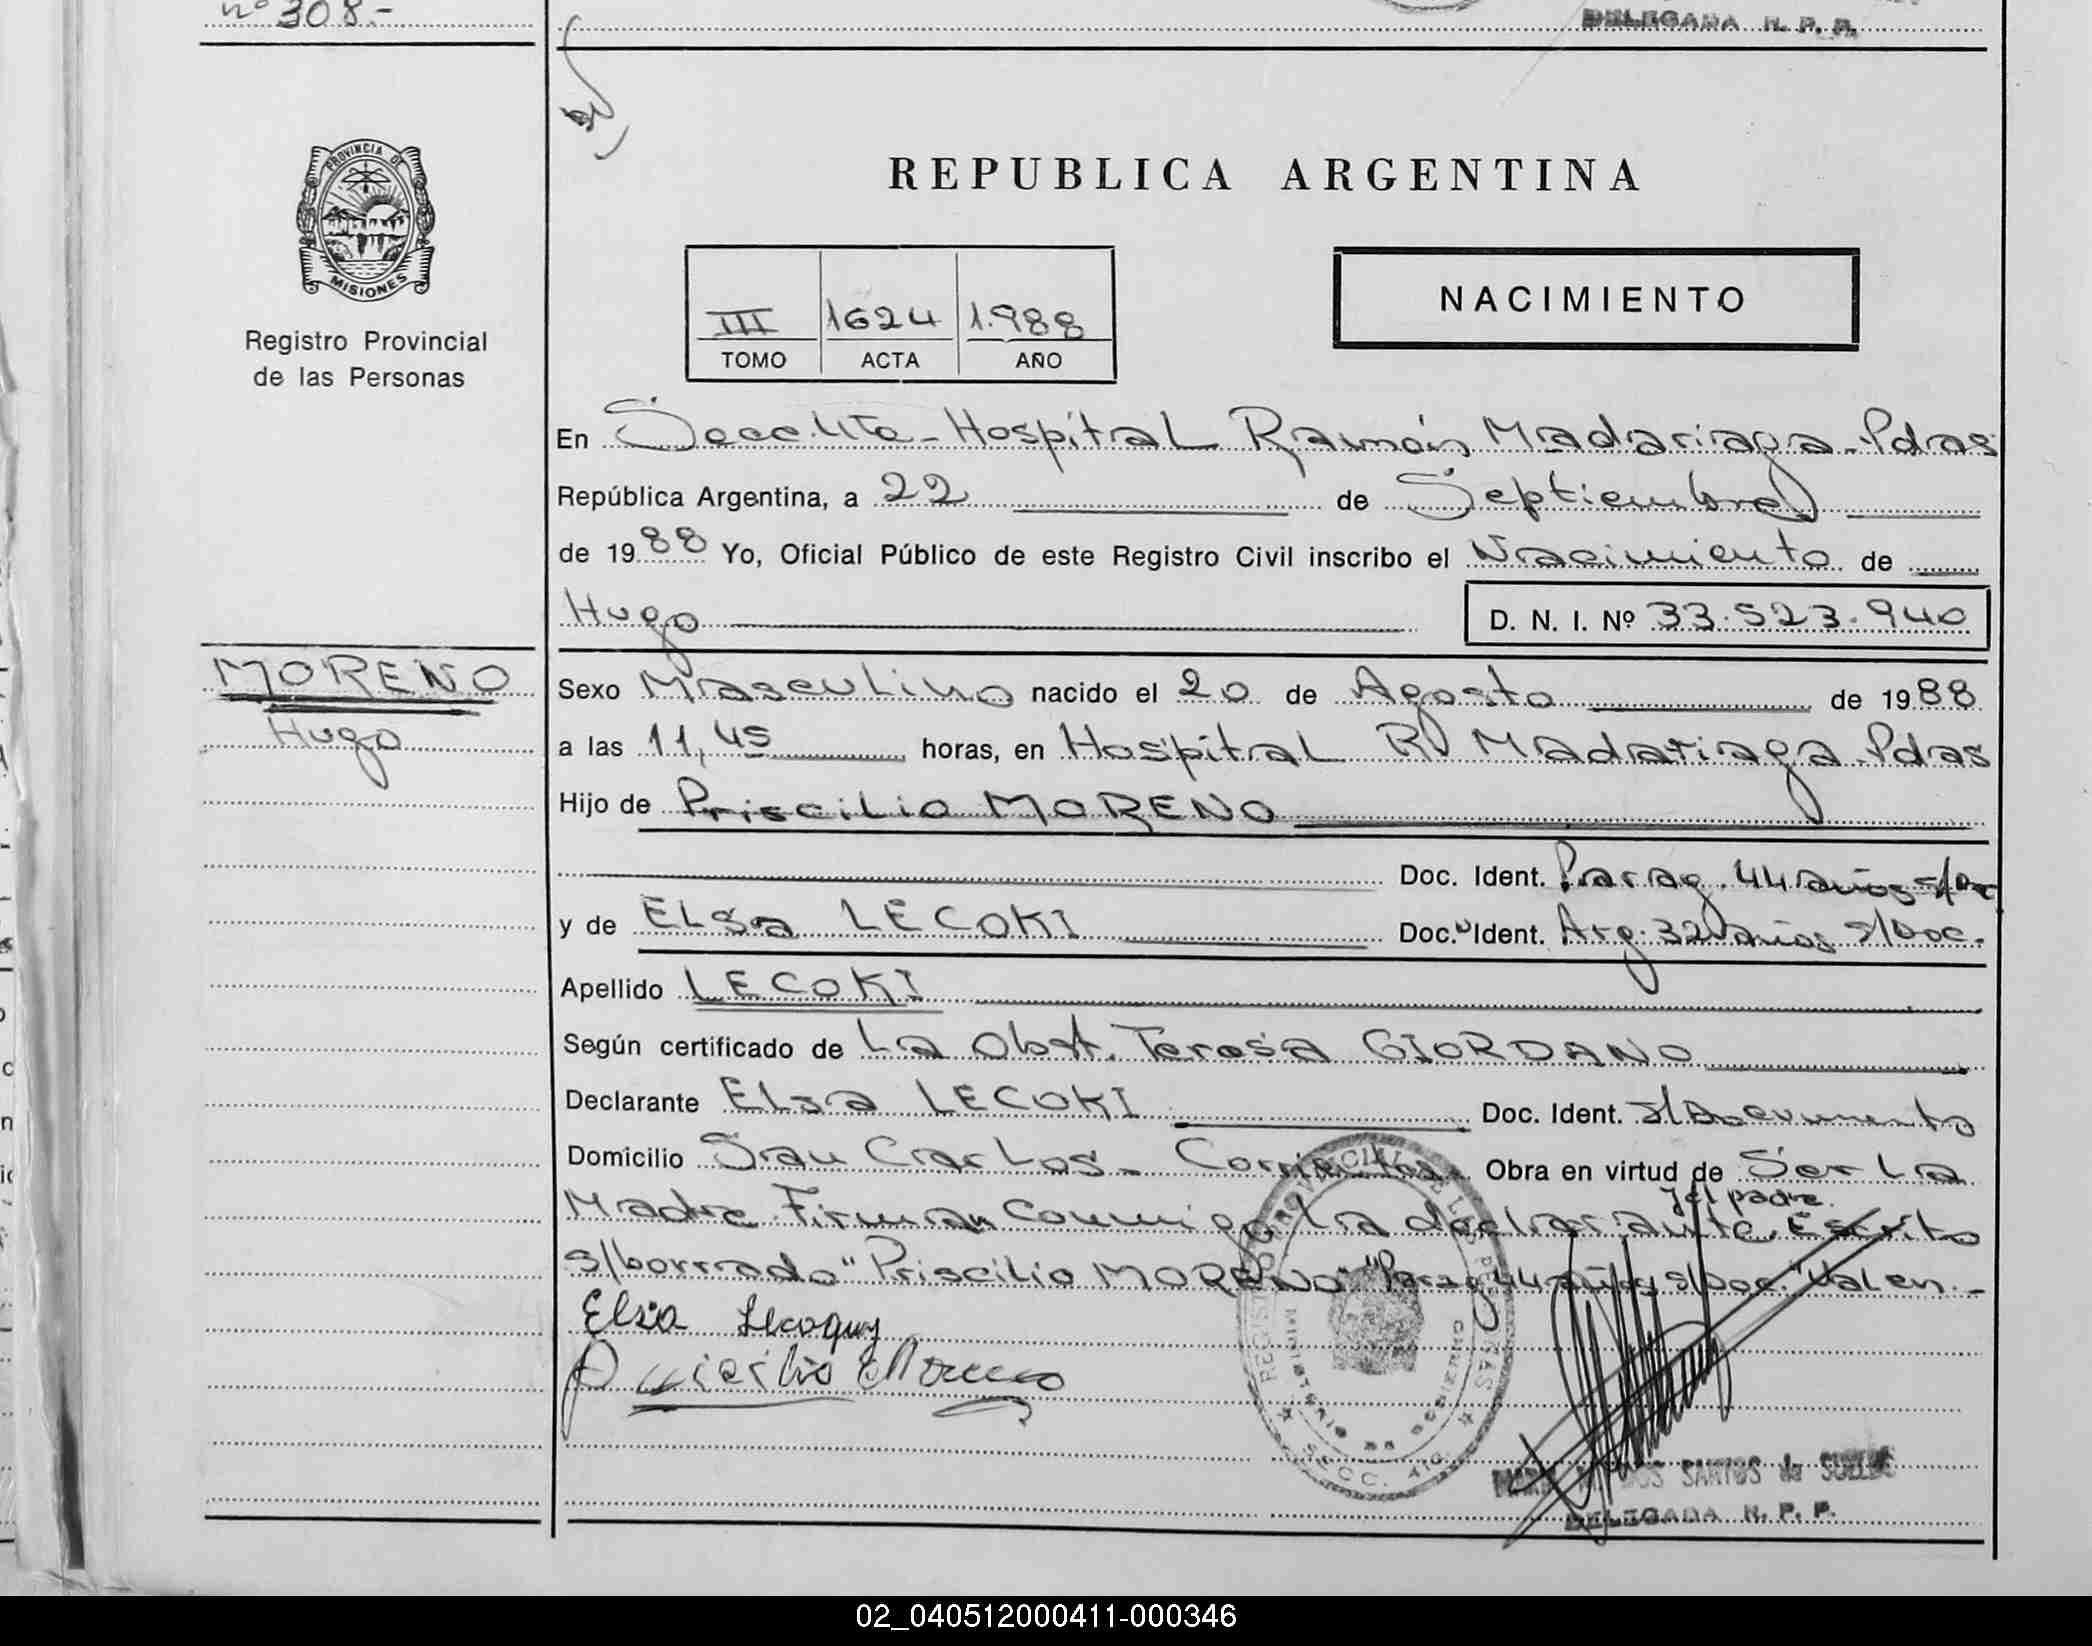 nº 308.-
DELEGADA R. P. P.
PROVINCIA DE
MISIONES
Registro Provincial
de las Personas
REPUBLICA ARGENTINA
III 1624 1.988
TOMO ACTA AÑO
NACIMIENTO
En Secc. Hospital Ramón Madariaga - Pdas
República Argentina, a 22 de Septiembre
de 1988 Yo, Oficial Público de este Registro Civil inscribo el Nacimiento de
Hugo D. N. I. Nº 33.523.940
MORENO
Hugo
Sexo Masculino nacido el 20 de Agosto de 1988
a las 11,45 horas, en Hospital R. Madariaga - Pdas
Hijo de Priscilio MORENO
Doc. Ident. Parag. 44 años s/Doc
y de ELSa LECOKI Doc. Ident. Arg. 32 años s/Doc.
Apellido LECOKI
Según certificado de La Obst. Teresa GIORDANO
Declarante ELsa LECOKI Doc. Ident. s/Documento
Domicilio San Carlos - Corrientes Obra en virtud de Ser La
y el padre.
Madre Firman Conmigo La declarante. Escrito
s/borrado "Priscilio MORENO" "Parag 44 años s/Doc." Valen.-
Elsa Lecoquy
Priscilio Moreno
REGISTRO PROVINCIAL DE LAS PERSONAS
MINISTERIO DE GOBIERNO
SECC. 4ta.
DOS SANTOS de
DELEGADA R. P. P.
02_040512000411-000346